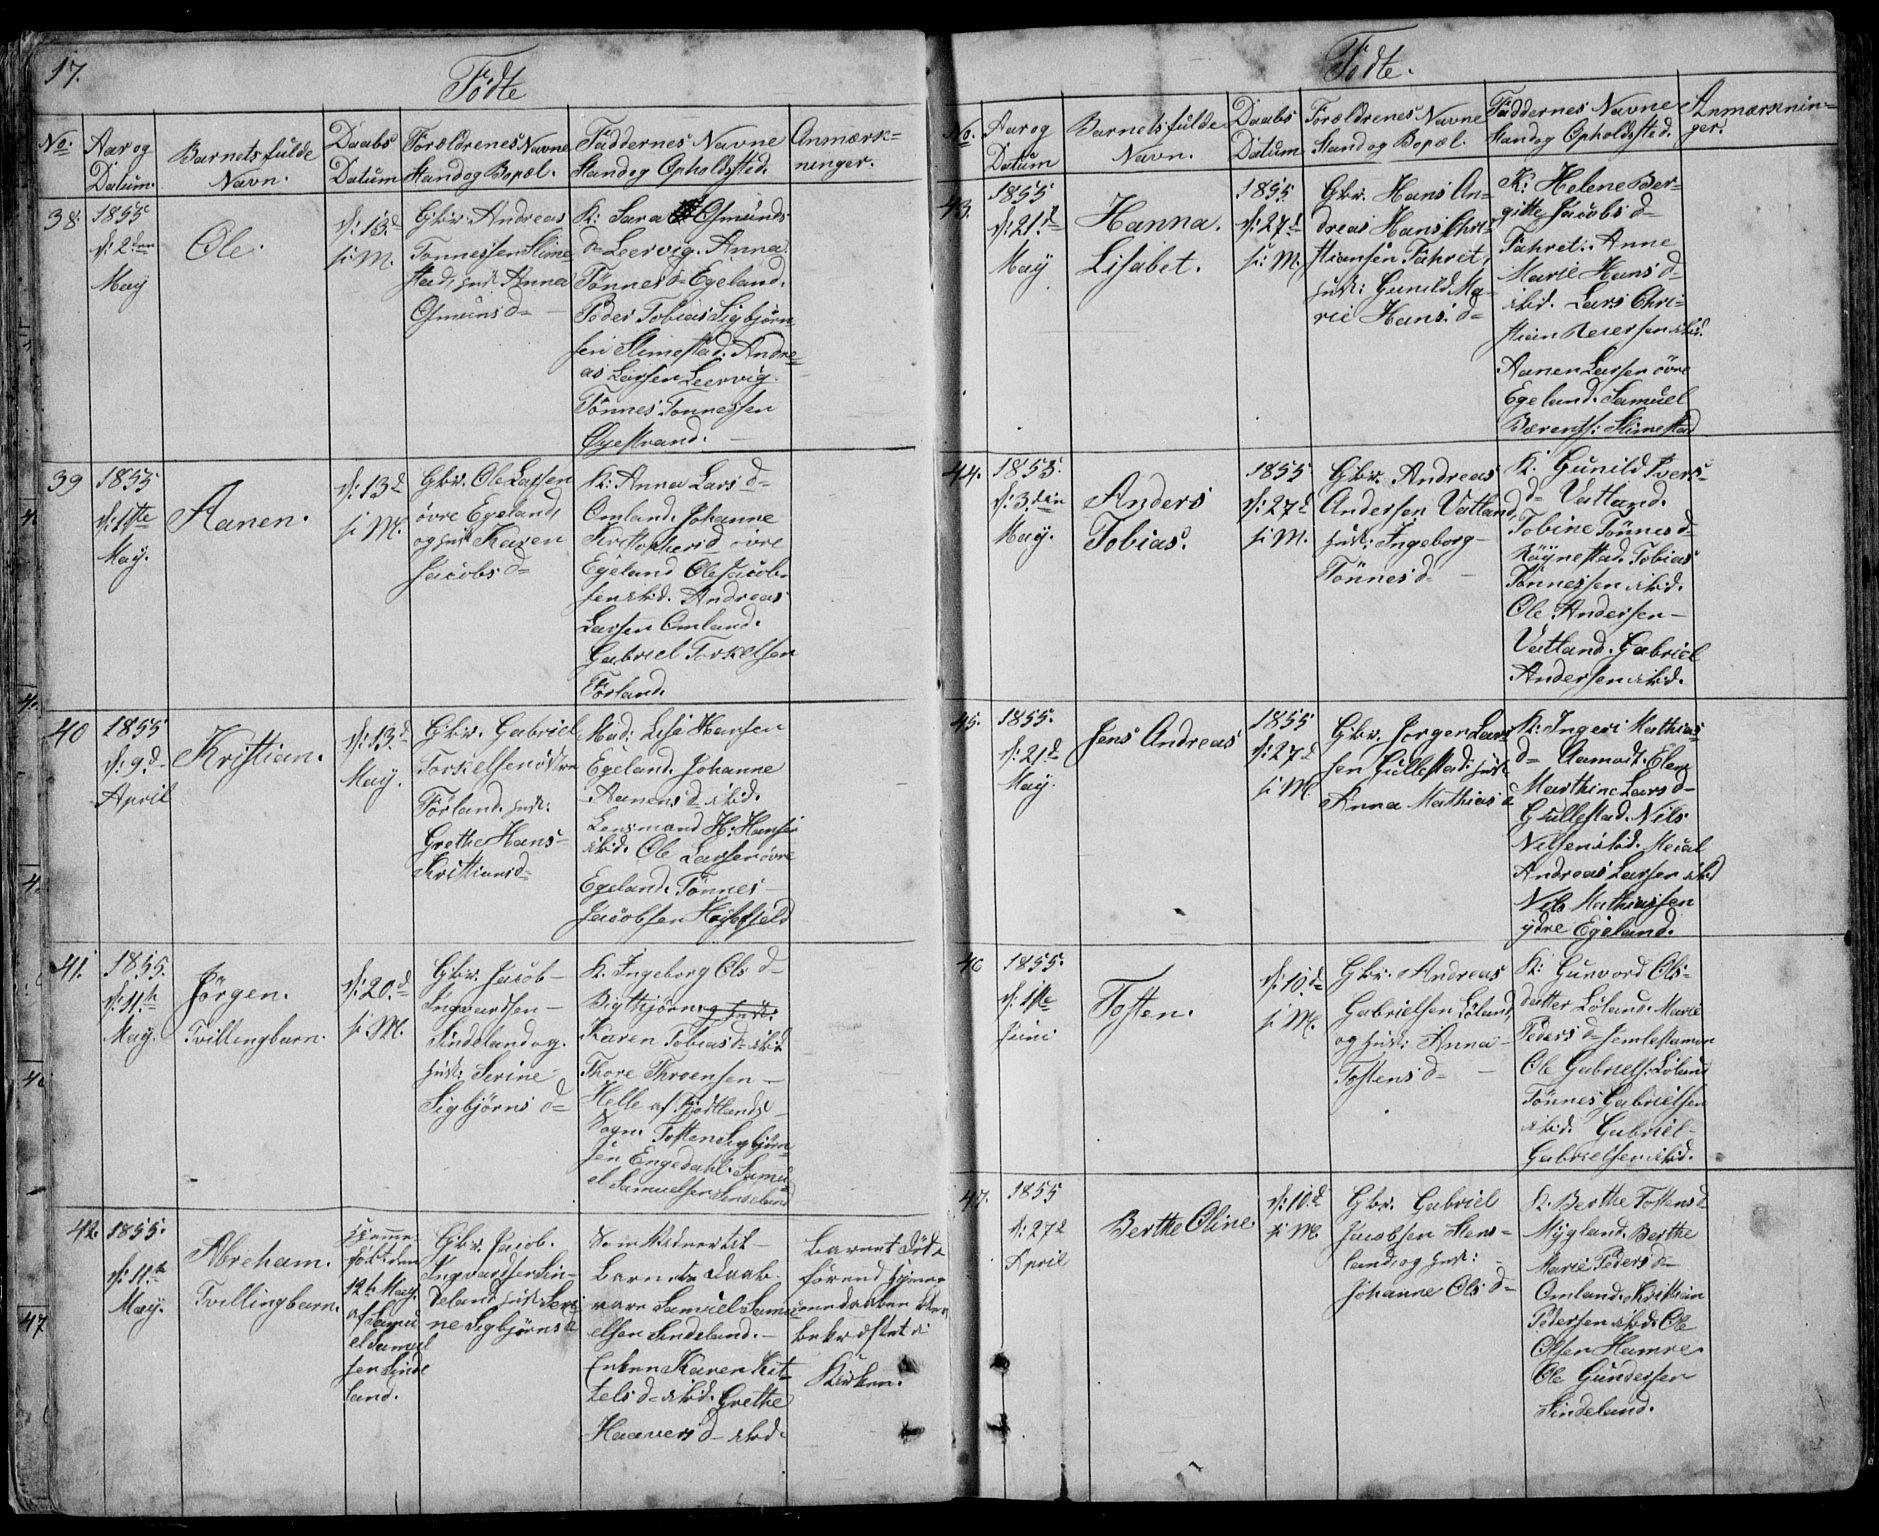 17.
Födte
No.
Aar og
Datum.
Barnets fulde
Navn.
Daabs
Datum
Forældrenes Navne
Stand og Bopæl.
Faddernes Navne
Stand og Opholdssted.
Anmærk=
ninger.
38.
1855
d: 2den
May
Ole.
d: 13d
s: M.
Gbr. Andreas
Tonnessen Slime=
stad, Anna
Osmuns d=
K: Sara Osmunds
d= Leervig. Anna
Tönnes d= Egeland.
Peder Tobias Sigbjörn
sen Slimestad. Andre=
as Larsen Leervig.
Tönnes Tonnessen
Öyestrand.
39
1855
d: 1ste
May.
Aanen.
d: 13d
s: M.
Gbr. Ole Larsen
övre Egeland,
og Karen
Jacobs d=
K: Anna Lars d=
Omland. Johanne
Kristophers d övre
Egeland Ole Jacob=
sen ibid. Andreas
Larsen Omland.
Gabriel Torkelsen
Förland.
40
1855
d: 9d
April
Kristian.
d: 13d
May.
Gbr. Gabriel
Torkelsen
Förland
Grethe Hans=
Kristians d=
Mad: Lisa Hansen
Egeland. Johanne
Aanens d= ibid.
Lensmand H: Hansen
ibid. Ole Larsen övre
Egeland. Tönnes
Jacobsen
41.
1855.
d: 11te
May.
Jörgen.
Tvillingbarn.
d: 20d
s: M.
Gbr. Jacob
Ingvardsen
Sindeland og
Serine
Sigbjörns d=
K. Ingeborg Ols d=
Karen Tobias d= ibid
Thore Throensen
Helle af Fjotlands
Sogn. Tosten Sigbjörn=
sen Engedahl. Samu=
el Samuelsen Sindeland
42.
1855.
d: 11te
May.
Abreham.
Tvillingbarn.
Hjemme
döbt den
12te May
af Samu
el Samuel
sen Sinde
land.
Gbr. Jacob
Ingvardsen Sin=
deland Seri=
ne Sigbjörns d
Barnets Daab
vare Samuel Samu=
elsen Sindeland.
Enken Karen Kit=
tels d= ibid. Grethe
Haavers d= ibid.
Barnet döde
förend Hjemme
daaben blev
bekræftet i
Kirken.
Födte.
No.
Aar og
Datum
Barnets fulde
Navn.
Daabs
Datum
Forældrenes Navne
Stand og Bopæl.
Faddernes Navne
Stand og Opholdssted.
Anmærknin=
ger.
43.
1855
d: 21d
May
Hanna
Lisabet.
1855
d: 27d
s: M.
Gbr. Hans An=
dreas Hans Chri=
stiansen Fahret,
Gunild Ma=
rie Hans d=
K: Helene Ber=
gitte Jacobs d=
Fahret. Anne
Marie Hans d=
ibid. Lars Chri=
stian Reiersen ibid.
Aanen Larsen övre
Egeland. Samuel
Bærents: Slimestad
44.
1855.
d: 3die
May.
Anders
Tobias.
1855
d: 27d
s: M.
Gbr. Andreas
Andersen Vatland,
Ingeborg
Tönnes d=
K. Gunild Ivers=
d= Vatland.
Tobine Tönnes d=
Röynestad. Tobias
Tönnessen ibid.
Ole Andersen
Vatland. Gabriel
Andersen ibid.
45.
1855.
d: 21d
May.
Jens Andreas
1855
d: 27d
s: M.
Gbr. Jörgen Lar=
sen Gullestad.
Anna Mathias d
K: Ingeri Mathias=
d= Aamodt. Elen
Marthine Lars d=
Gullestad. Nils
Nilsen ibid.
Andreas Larsen ibid
Nils Mathiassen
ydre Egeland.
46
1855.
d: 1ste
Juni
Tosten.
d: 10d=
s: M.
Gbr. Andreas
Gabrielsen Löland,
og Anna
Tostens d=
K: Gunvord Ols=
datter Löland. Marie
Peders d=
Ole Gabriels: Löland
Tönnes Gabrielsen
ibid. Gabriel
Gabrielsen ibid.
47.
1855
d: 27d
April
Berthe Oline
d: 10d
s: M.
Gbr. Gabriel
Jacobsen Hens=
land og
Johanne Ols d=
K. Berthe Tostens d
Mygland. Berthe
Marie Peders d=
Omland. Kristian
Pedersen ibid. Ole
Olsen Hamre.
Ole Gundersen
Sindeland.